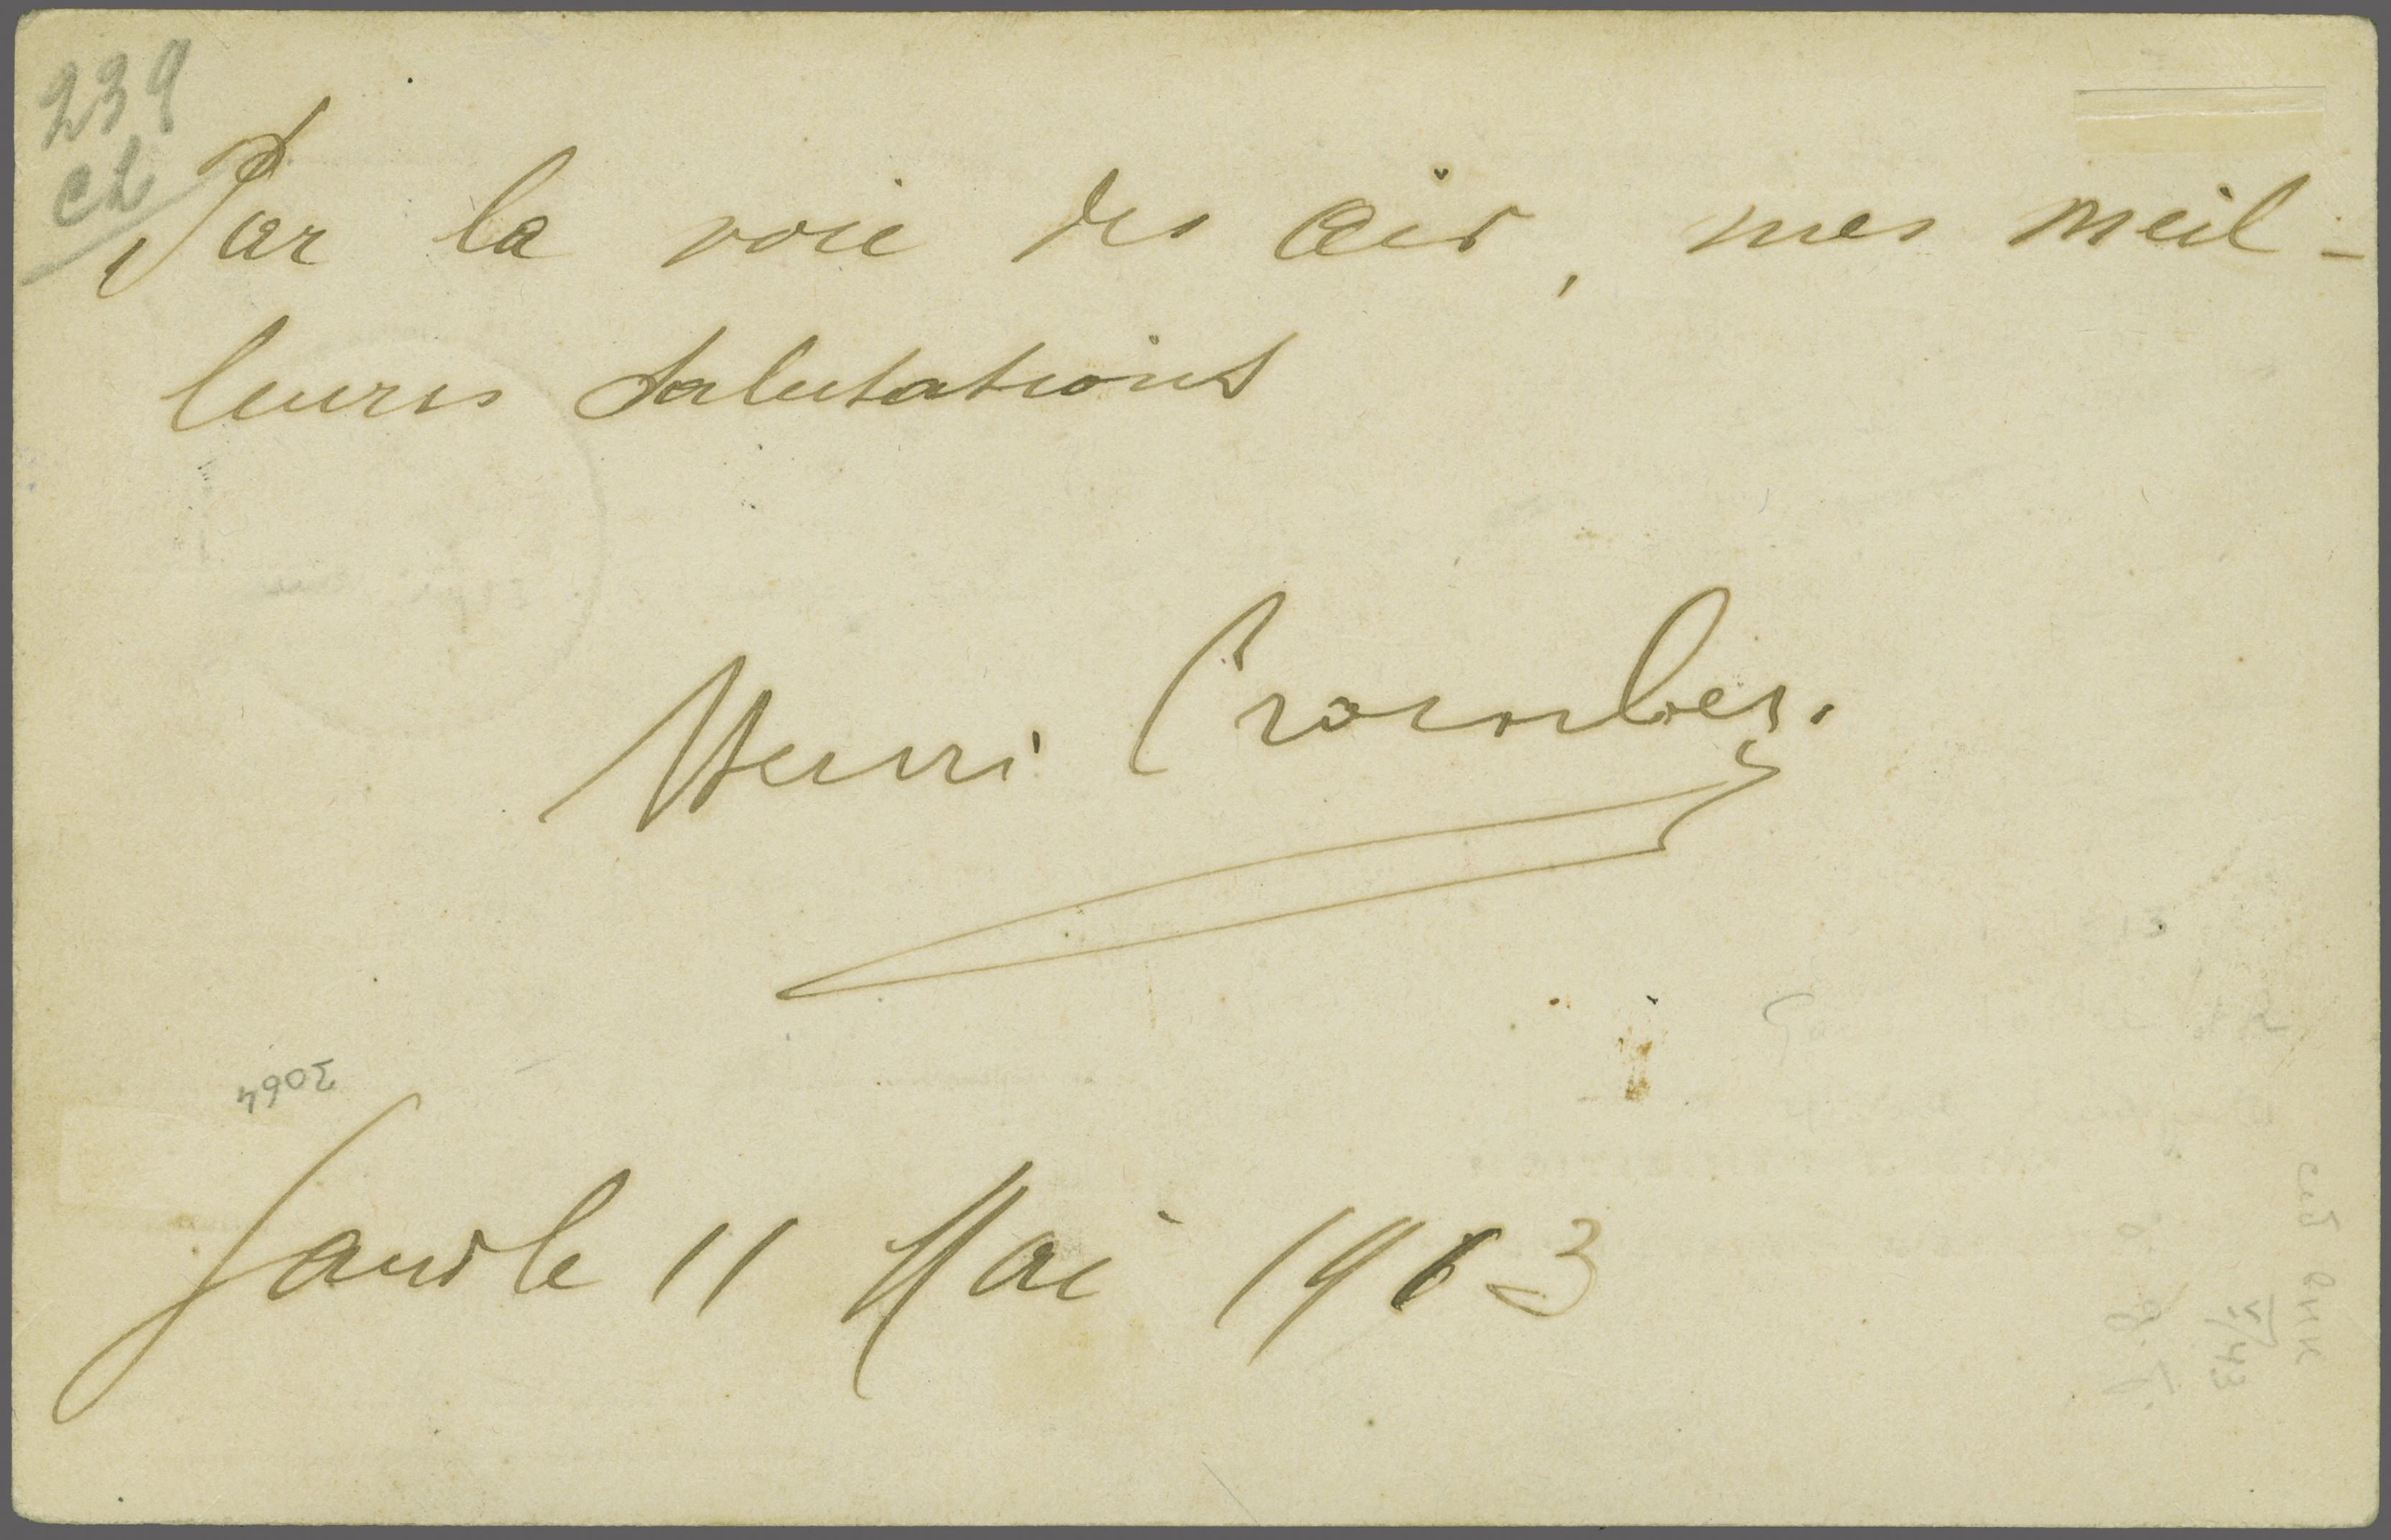 239
CL
Par la voie des airs, mes meil-
leures salutations
Henri Crombez.
3064
Gand le 11 Mai 1913